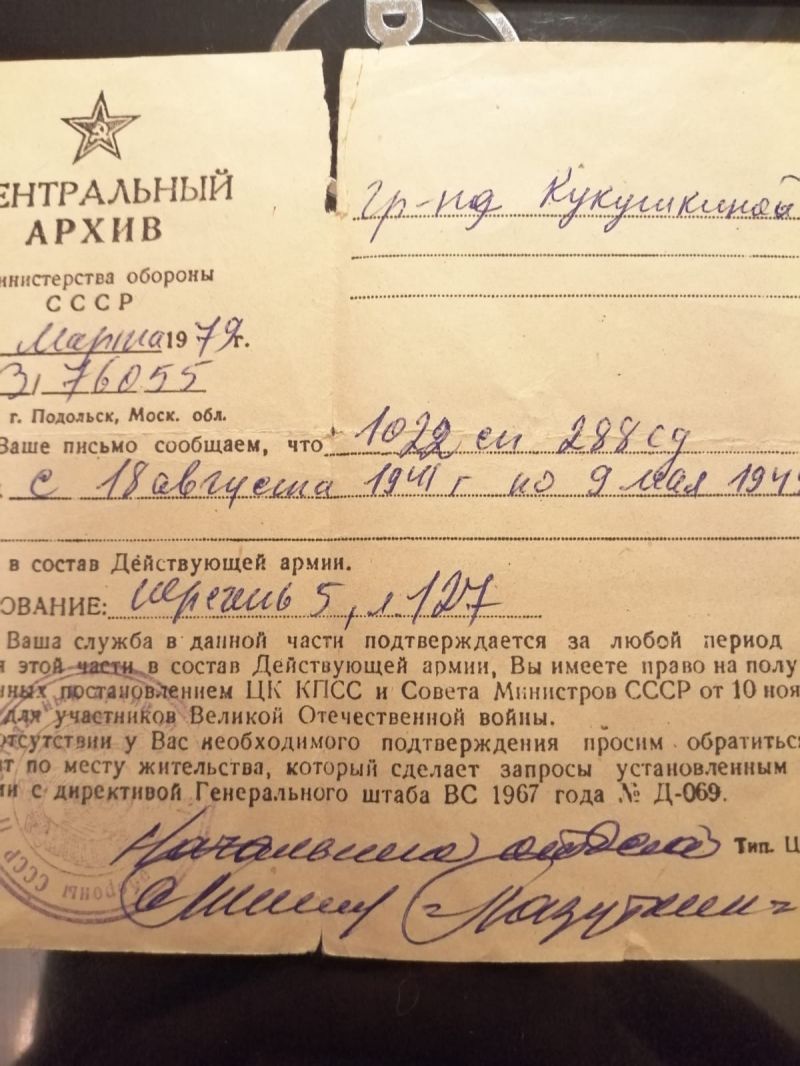 ЕНТРАЛЬНЫЙ
АРХИВ
инистерства обороны
СССР
Марта 1979 г.
3/76055
г. Подольск, Моск. обл.
гр-ке Кукушкиной
Ваше письмо сообщаем, что 1022 сп 288 сд
с 18 августа 1941 г по 9 мая 194
в состав Действующей армии.
ОВАНИЕ: перечень 5, л 127
Ваша служба в данной части подтверждается за любой период
я этой части в состав Действующей армии, Вы имеете право на полу
нных постановлением ЦК КПСС и Совета Министров СССР от 10 ноя
для участников Великой Отечественной войны.
отсутствии у Вас необходимого подтверждения просим обратиться
т по месту жительства, который сделает запросы установленным
ии с директивой Генерального штаба ВС 1967 года № Д-069.
Начальник отдела Тип. Ц
Лазуткин
ОБОРОНЫ СССР